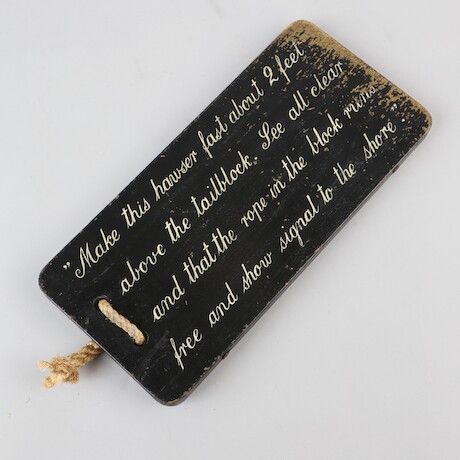 "Make this hawser fast about 2 feet
above the tailblock. See all clear
and that the rope in the block runs
free and show signal to the shore"